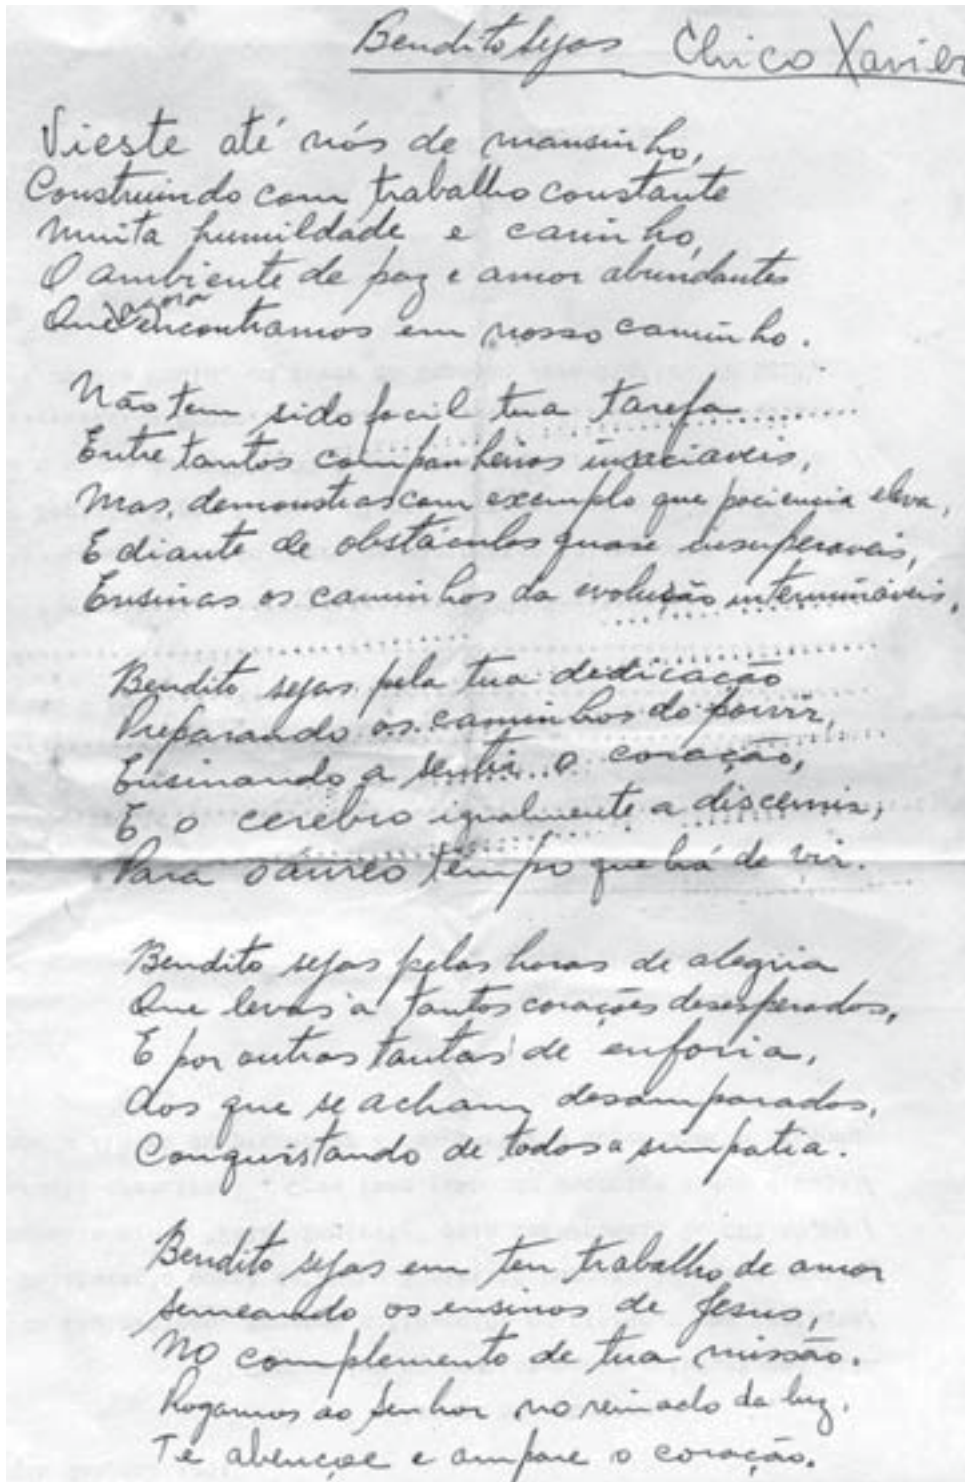 Bendito sejas Chico Xavier
Vieste até nós de mansinho,
Construindo com trabalho constante
Muita humildade e carinho,
O ambiente de paz e amor abundantes
Que agora encontramos em nosso caminho.
Não tem sido facil tua tarefa
Entre tantos companheiros insaciaveis,
Mas, demonstras com exemplo que paciencia eleva,
E diante de obstáculos quase insuperaveis,
Ensinas os caminhos da evolução intermináveis.
Bendito sejas pela tua dedicação
Preparando os caminhos do porvir,
Ensinando a sentir o coração,
E o cerebro igualmente a discernir,
Para o áureo tempo que há de vir.
Bendito sejas pelas horas de alegria
Que levas a tantos corações desesperados,
E por outras tantas de euforia,
Aos que se acham desamparados,
Conquistando de todos a simpatia.
Bendito sejas em teu trabalho de amor
Semeando os ensinos de Jesus,
No complemento de tua missão.
Rogamos ao Senhor no reinado da luz,
Te abençoe e ampare o coração.